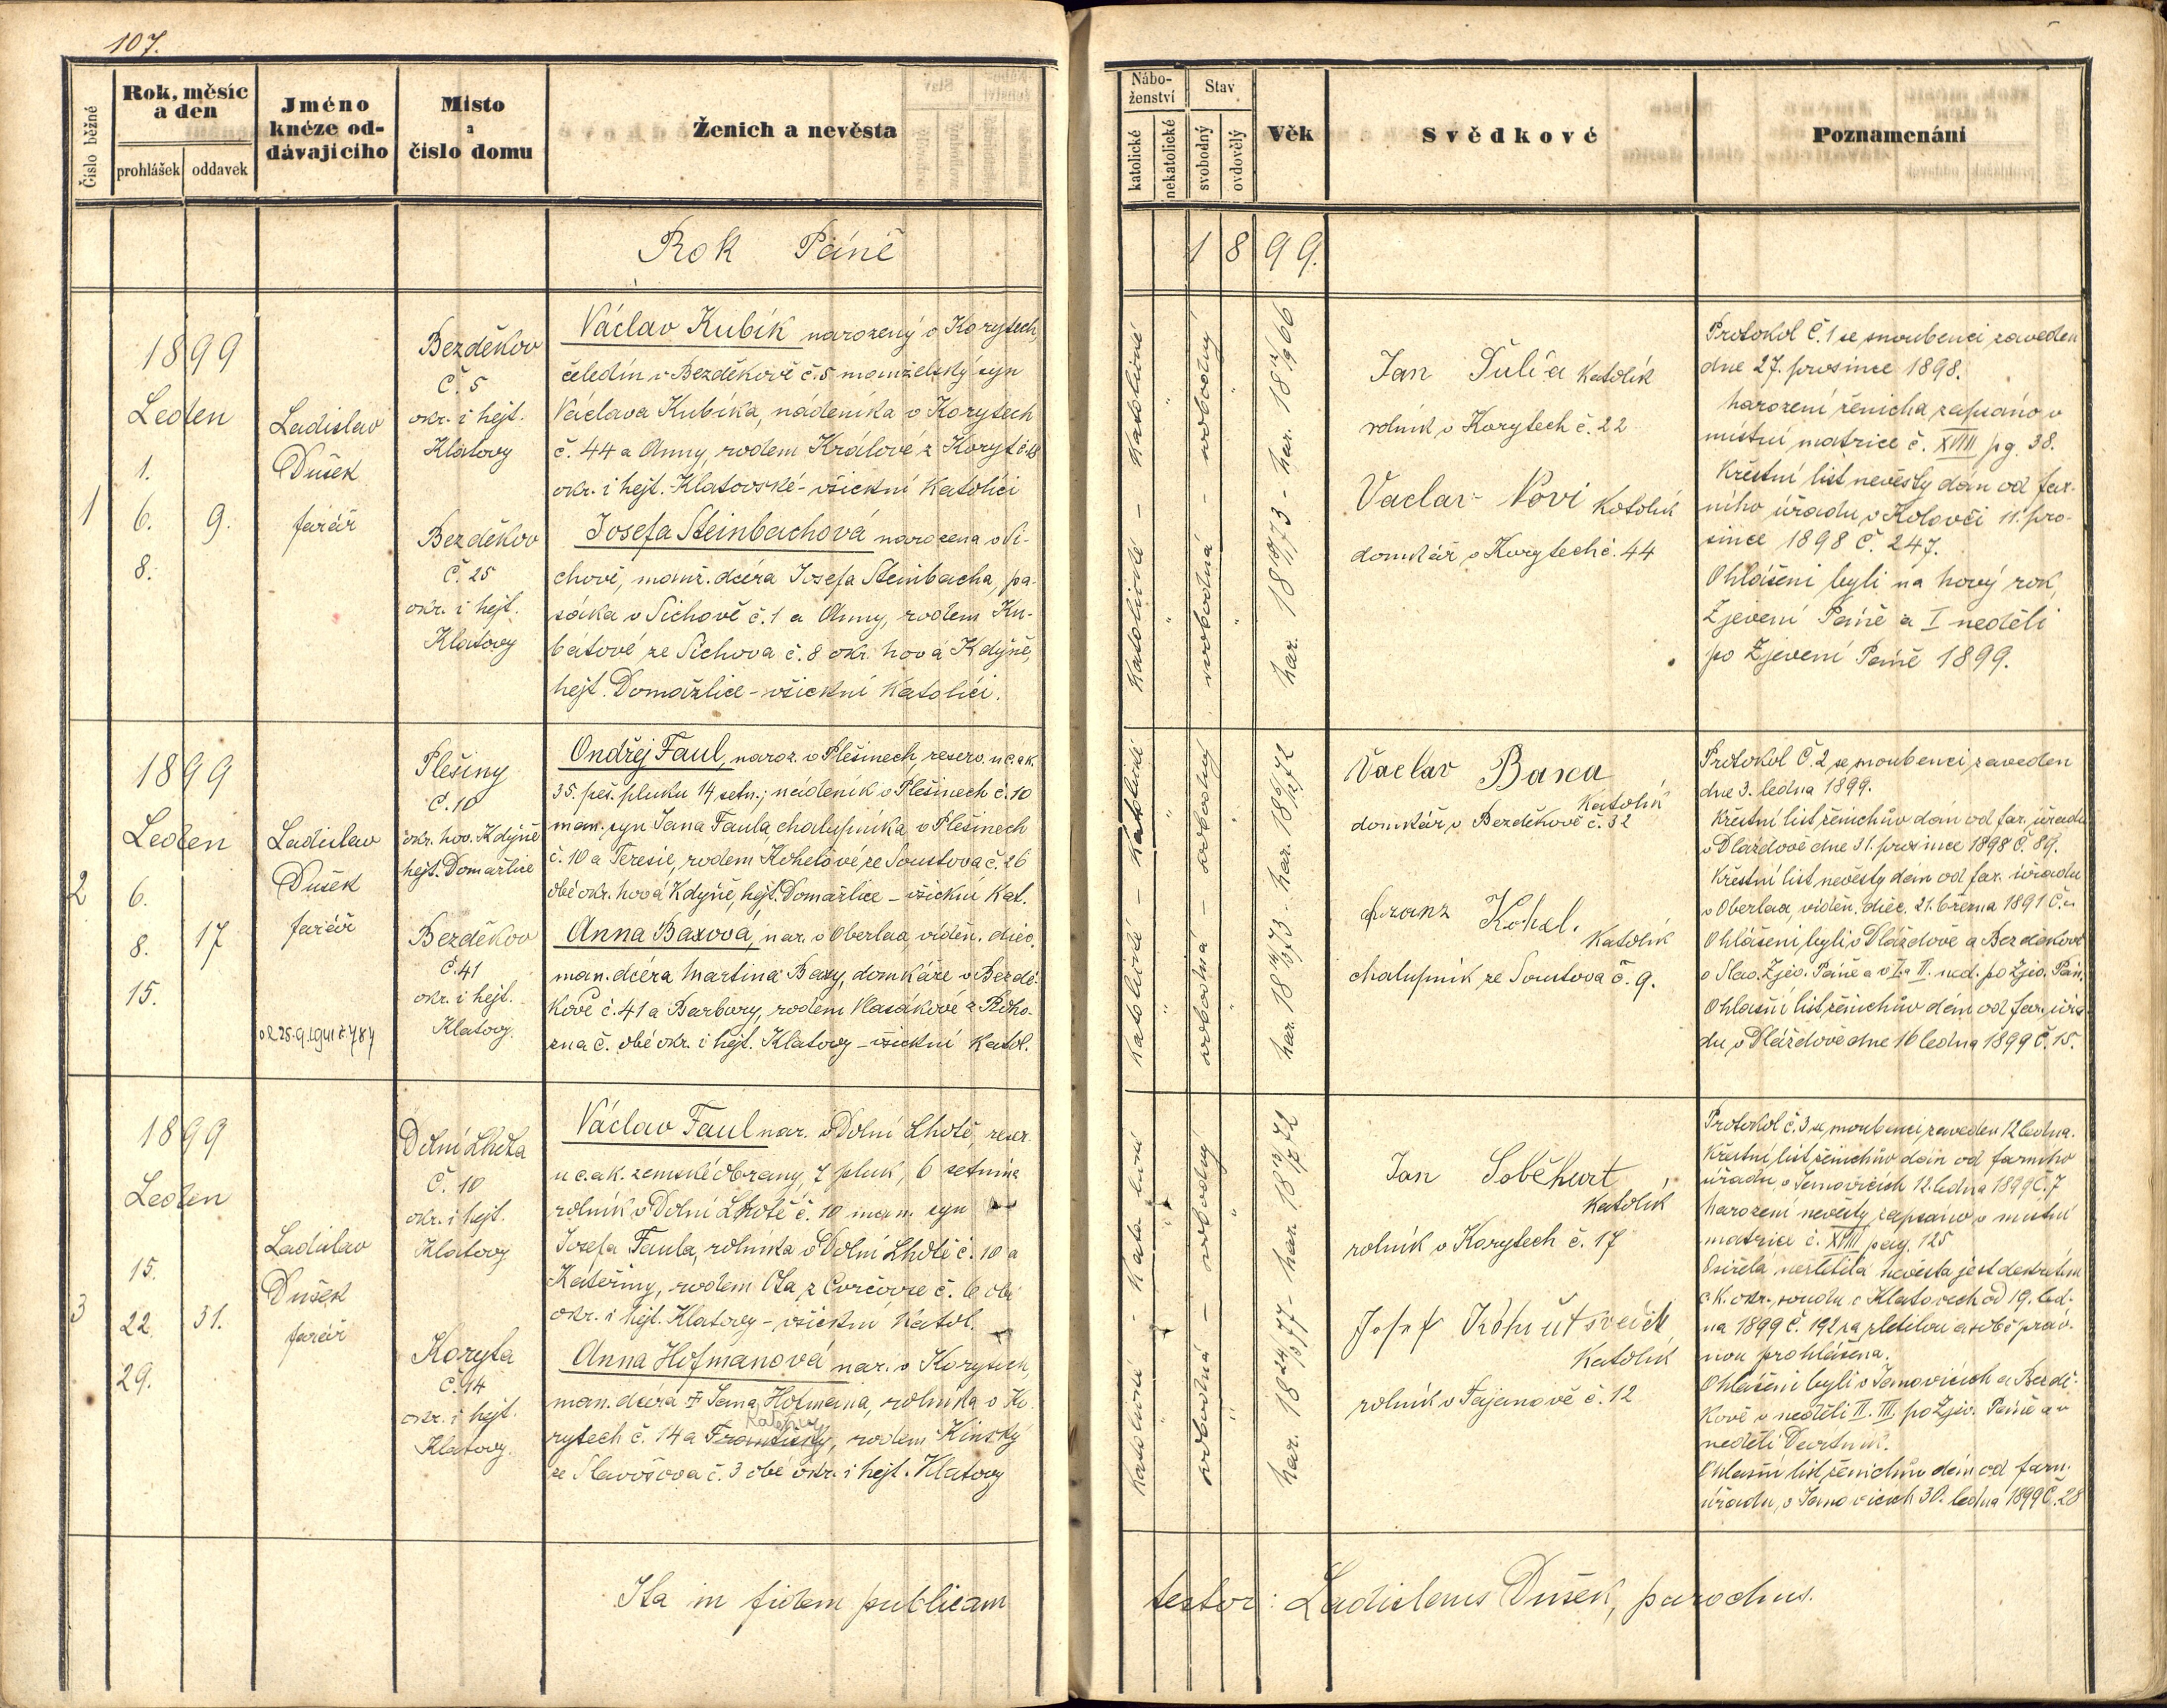 107.
Číslo běžné
Rok, měsíc
a den
prohlášek
oddavek
Jméno
knéze od-
dávajícího
Místo
a
číslo domu
Ženich a nevěsta
Nábo-
ženství
katolické
nekatolické
Stav
svobodný
ovdovělý
Věk
Svědkové
Poznamenání
Rok Páně
1899.
1
1899
Leden
1.
6.
8.
9.
Ladislav
Dušek
farář
Bezděkov
č. 5
okr. i hejt.
Klatovy
Bezděkov
č. 25
okr. i hejt.
Klatovy
Václav Kubík narozený v Korytech,
čeledín v Bezděkově č. 5 manželský syn
Václava Kubíka, nádeníka v Korytech
č. 44 a Anny, rodem Králové z Koryt č. 18
okr. i hejt. Klatovské - všickni katolíci
Josefa Steinbachová narozena v Si-
chově, manž. dcera Josefa Steinbacha, pa-
sáka v Sichově č. 1 a Anny, rodem Ku-
bátové ze Sichova č. 8 okr. nová Kdýně,
hejt. Domažlice - všickni katolíci.
katolické - katolické
svobodná - svobodný
Jan Tulia katolík
rolník v Korytech č. 22
Vaclav Novi katolík
domkář v Korytech č. 44
Protokol č. 1 se snoubenci zaveden
dne 27. prosince 1898.
Narození ženicha zapsáno v
místní matrice č. XVIII pg. 38.
Křestní list nevěsty dán od far-
ního úřadu v Kolovči 11. pro-
since 1898 č. 247.
Ohlášeni byli na nový rok,
Zjevení Páně a I neděli
po Zjevení Páně 1899.
2
1899
Leden
6.
8.
15.
17
Ladislav
Dušek
farář
Plešiny
č. 10
okr. nov. Kdýně
hejt. Domažlice
Bezděkov
č. 41
okr. i hejt.
Klatovy.
Ondřej Faul, naroz. v Plešinech, reserv. u c. a k.
35. peš. pluku 14 setn.; nádeník v Plešinech č. 10
man. syn Jana Faula, chalupníka v Plešinech
č. 10 a Teresie, rodem Kohelové ze Soustova č. 26
obé okr. nová Kdýně, hejt. Domažlice - všickni kat.
Anna Baxova, nar. v Oberlaa, víděn. diec.
man. dcera Martina Baxy, domkáře v Bezdě-
kově č. 41 a Barbory, rodem Vlasákové z Roho-
zna č. obé okr. i hejt. Klatovy - všickni katol.
katolické - katolické
svobodná - svobodný
Václav Baxa
katolík
domkář v Bezděkově č. 32
Franz Kohel.
katolík
chalupník ze Soustova č. 9.
Protokol č. 2 se snoubenci zaveden
dne 3. ledna 1899.
Křestní list ženichův dán od far. úřadu
v Dlažďově dne 31. prosince 1898 č. 89.
Křestní list nevěsty dán od far. úřadu
v Oberlaa, víděn. diéc. 21. března 1891
Ohlášeni byli v Dlážďově a Bezděkově
o Slav. Zjev. Páně a v I. a II. ned. po Zjev. Pán.
Ohlašní list ženichův dán od far. úřa-
du v Dlážďově dne 16 ledna 1899 č. 15.
3
1899
Leden
15.
22.
29.
31.
Ladislav
Dušek
farář
Dolní Lhota
č. 10
okr. i hejt.
Klatovy
Koryta
č. 14
okr. i hejt.
Klatovy.
Václav Faul nar. v Dolní Lhotě, reser.
u c. a k. zemské obrany, 7 pluk, 6 setnina
rolník v Dolní Lhotě č. 10 man. syn
Josefa Faula, rolníka v Dolní Lhotě č. 10 a
Kateřiny, rodem Ota z Corčovse č. 6 obé
okr. i hejt. Klatovy - všickni katol.
Anna Hofmanová nar. v Korytech,
man. dcera † Jana Hofmana, rolníka v Ko-
Kateřiny
rytech č. 14 a Františky, rodem Kinský
ze Slavošova č. 3 obé okr. i hejt. Klatovy
katolické - katolické
svobodná - svobodný
Jan Soběhart
katolík
rolník v Korytech č. 17
Josef Kohút
katolík
rolník v Tajanově č. 12
Protokol č. 3 se snoubenci zaveden 12 ledna.
Křestní list ženichův dán od farního
úřadu v Janovicích 12. ledna 1899 č. 7
Narození nevěsty zapsáno v místní
matrice č. XVIII pag. 125
Osiřelá nezletilá nevěsta jest dekretem
c. k. okr. soudu v Klatovech od 19. led-
na 1899 č. 192 za zletilou a sobě práv-
nou prohlášena.
Ohlášeni byli v Janovicích a Bezdě-
kově v neděli II. III. po Zjev. Páně a v
neděli Devítník.
Ohlašní list ženichův dán od farn.
úřadu v Janovicích 30. ledna 1899 č. 28
Ita in fidem publicam
testor: Ladislaus Dušek, parochus.